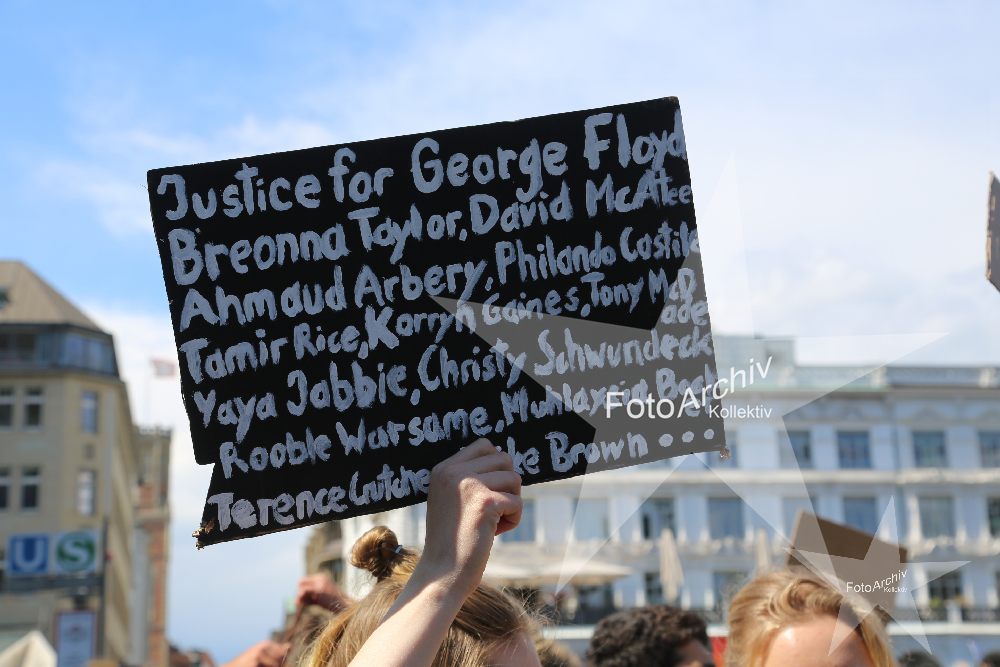 Justice for George Floyd
Breonna Taylor, David McAtee
Ahmaud Arbery, Philando Castile
Tamir Rice, Korryn Gaines, Tony McD
ade
Yaya Jabbie, Christy Schwundeck
Rooble Warsame,
Terence Brown ....
U S
FotoArchiv
Kollektiv
FotoArchiv
Kollektiv